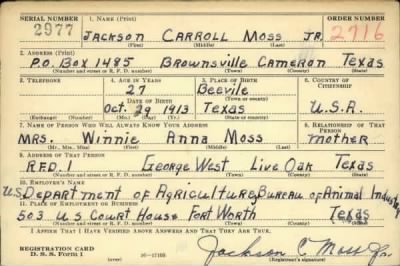 SERIAL NUMBER 1. NAME (Print) ORDER NUMBER
2977 JACKSON CARROLL MOSS JR. 2716
(First) (Middle) (Last)
2. ADDRESS (Print)
P.O. BOX 1485 BROWNSVILLE CAMERON TEXAS
(Number and street or R. F. D. number) (Town) (County) (State)
3. TELEPHONE 4. AGE IN YEARS 5. PLACE OF BIRTH 6. COUNTRY OF CITIZENSHIP
27 Beeville
DATE OF BIRTH (Town or county)
Oct. 29 1913 Texas U.S.A.
(Exchange) (Number) (Mo.) (Day) (Yr.) (State or country)
7. NAME OF PERSON WHO WILL ALWAYS KNOW YOUR ADDRESS 8. RELATIONSHIP OF THAT PERSON
MRS. Winnie Anna Moss mother
(Mr., Mrs., Miss) (First) (Middle) (Last)
9. ADDRESS OF THAT PERSON
R.F.D. 1 George West Live Oak Texas
(Number and street or R. F. D. number) (Town) (County) (State)
10. EMPLOYER'S NAME
U.S. Department of Agriculture, Bureau of Animal Industry
11. PLACE OF EMPLOYMENT OR BUSINESS
503 U S Court House Fort Worth Texas
(Number and street or R. F. D. number) (Town) (County) (State)
I AFFIRM THAT I HAVE VERIFIED ABOVE ANSWERS AND THAT THEY ARE TRUE.
REGISTRATION CARD
D. S. S. FORM 1 16—17105 Jackson C. Moss Jr.
(Registrant's signature)